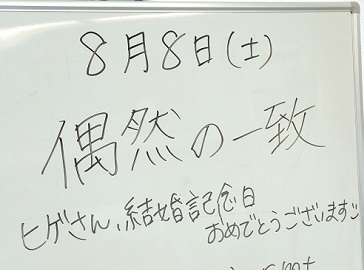 8月8日(土)
偶然の一致
ヒゲさん、結婚記念日
おめでとうございます